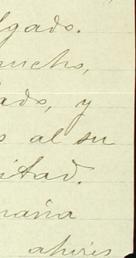 lgado.
mucho,
ado, y
s al su
itad.
maña
ahires